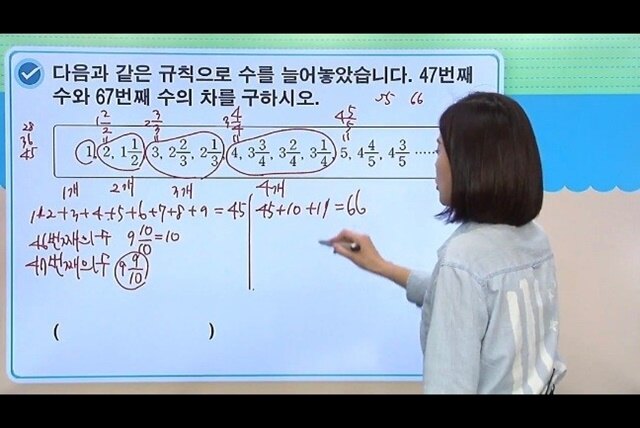 다음과 같은 규칙으로 수를 늘어놓았습니다. 47번째
수와 67번째 수의 차를 구하시오.
55 66
28
36
45
1 2/2 2 3/3 3 4/4 4 5/5
1, 2, 1 1/2, 3, 2 2/3, 2 1/3, 4, 3 3/4, 3 2/4, 3 1/4, 5, 4 4/5, 4 3/5 ······
1개 2개 3개 4개
1+2+3+4+5+6+7+8+9=45
45+10+11=66
46번째의 수 9 10/10=10
47번째의 수 9 9/10
( )